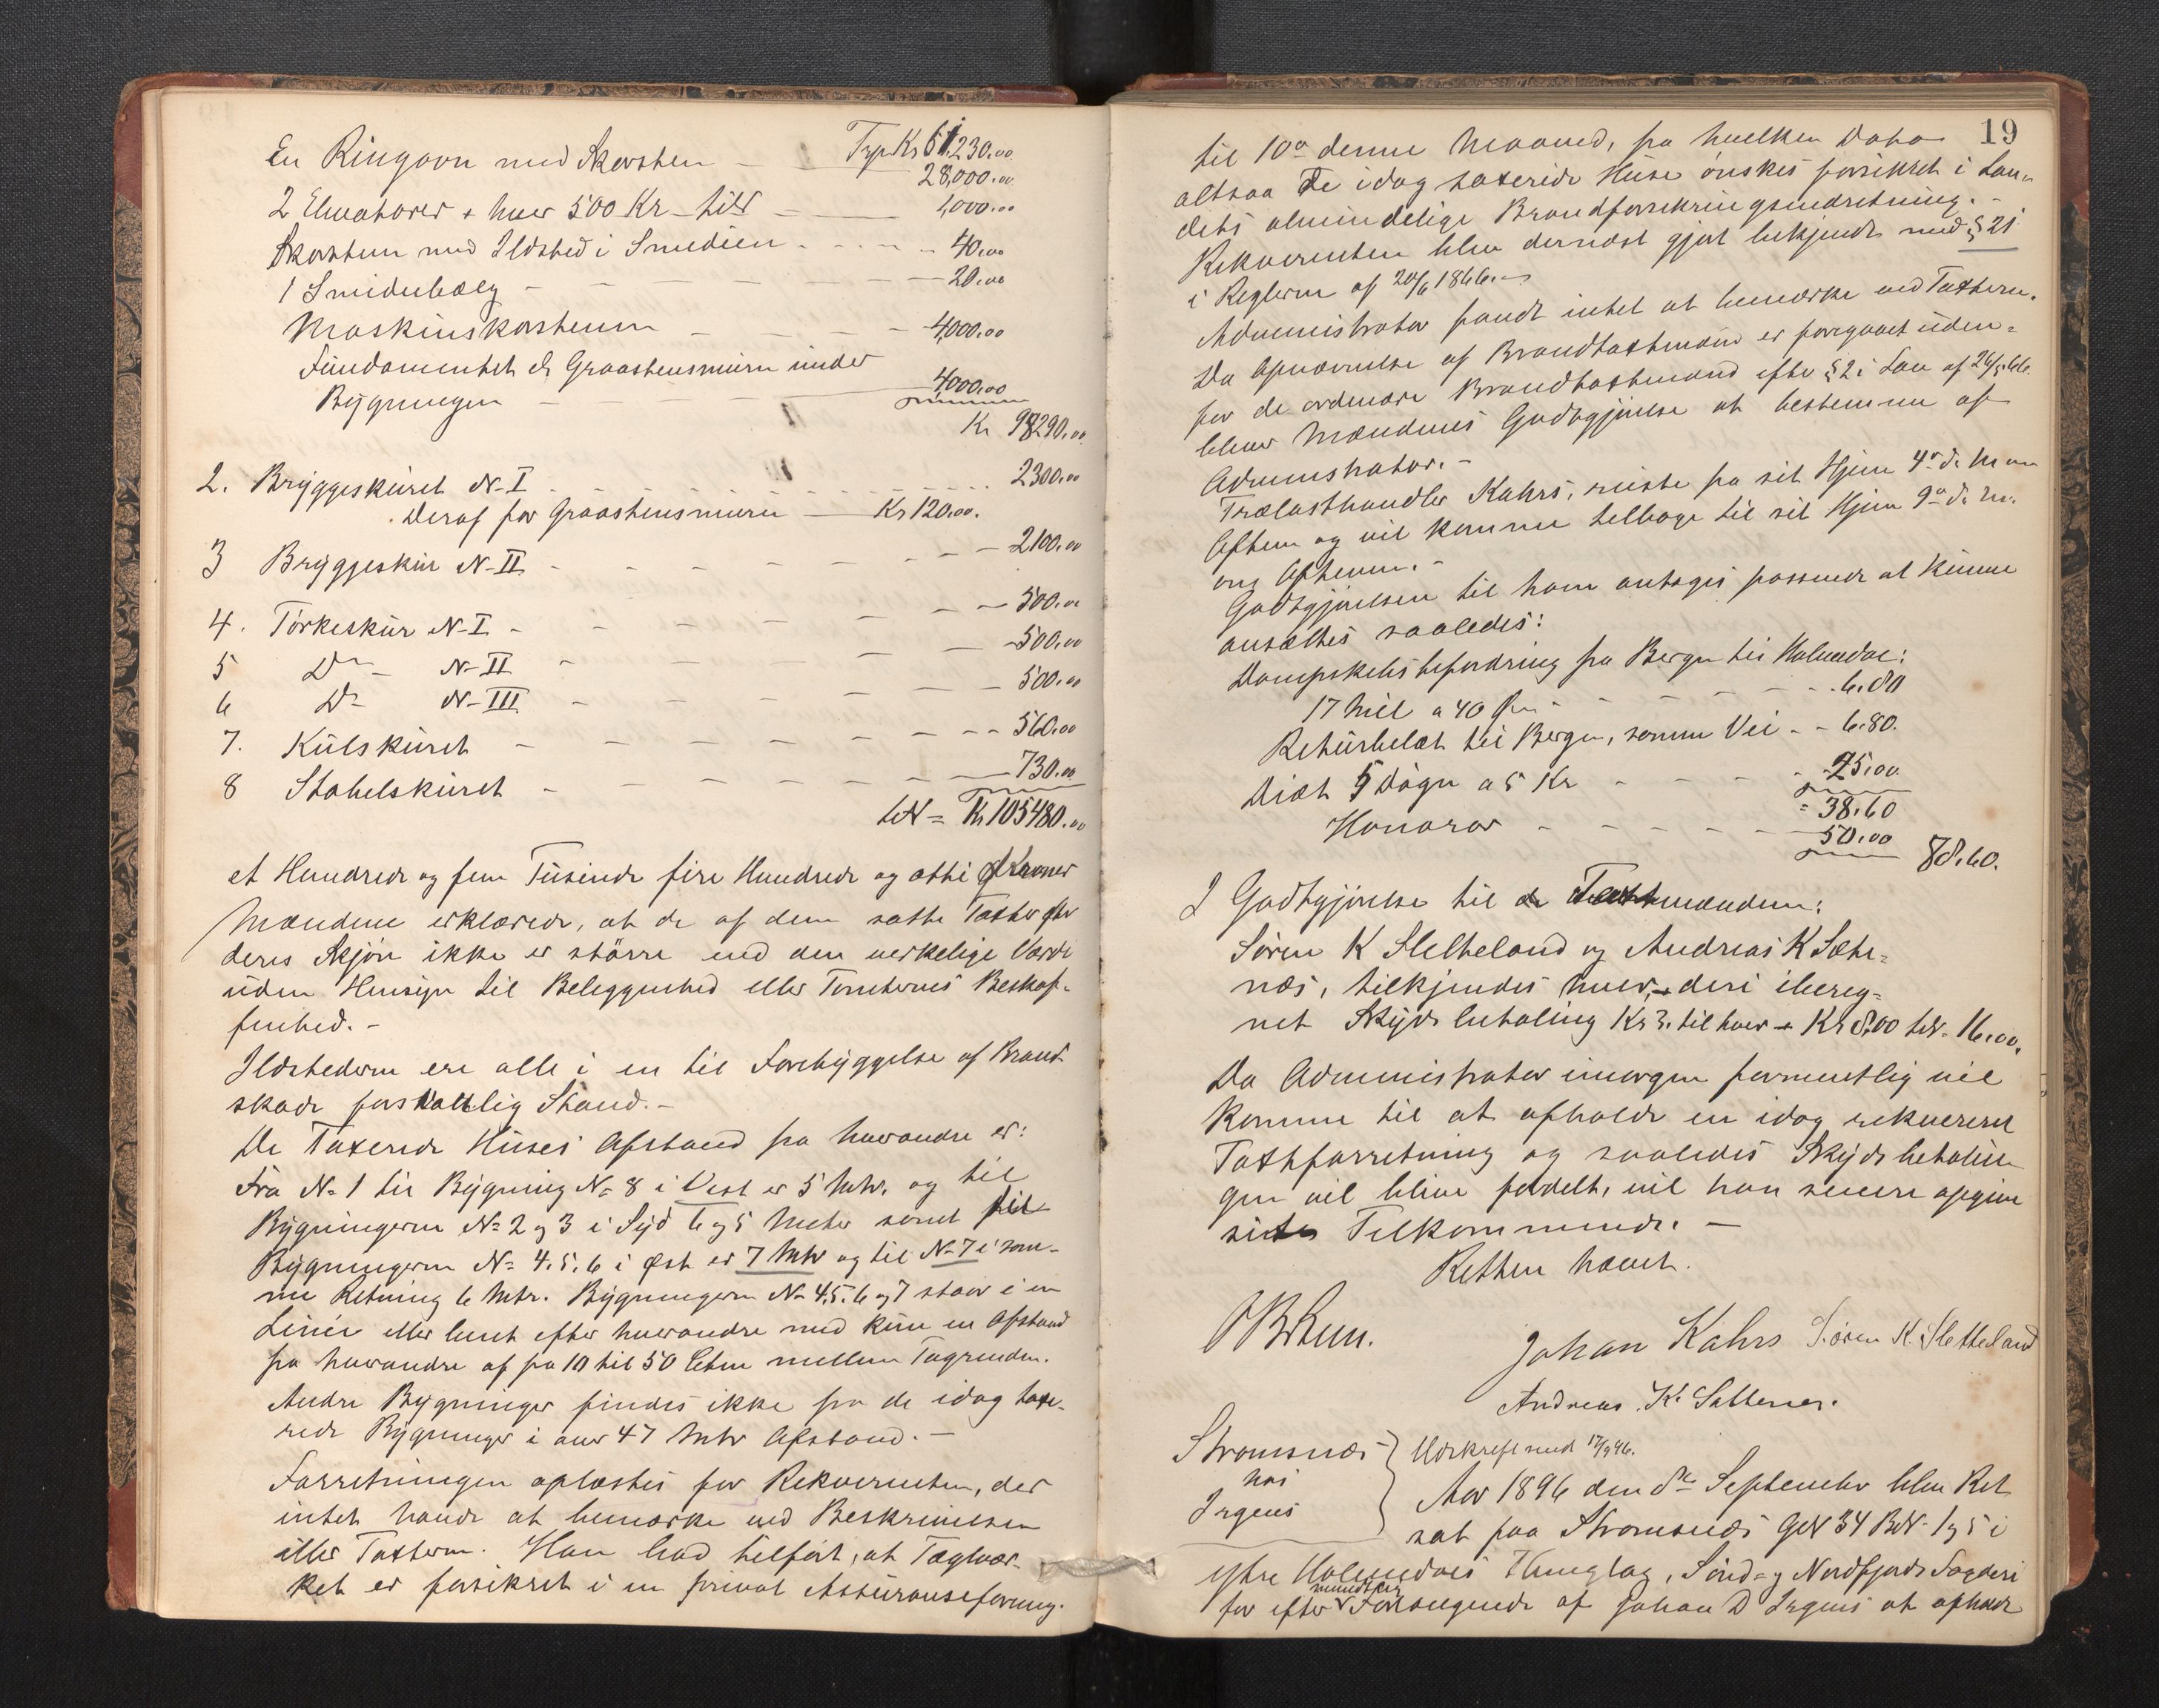 Trp Kr 61,230.00
En Ringovn med Skorsten - 28,000.00
2 Elevatorer + hver 500 Kr - tils - 1,000.00
Skorsten med Ildsted i Smedien - 40.00
1 Smidebælg - 20.00
Maskinskorstenen - 4,000.00
Fundamentet & Graastensmuren under
Bygningen - 4000.00
Kr 98290.00
2. Bryggeskuret N-I 2300.00
Deraf for Graastensmuren - Kr 120.00.
3 Bryggeskur N-II - 2100.00
4. Törkeskur N-I - 500.00
5 Do - N-II - 500.00
6 Do N-III - 500.00
7. Kulskuret - 560.00
8 Stabelskuret - 730.00
tils = Kr 105480.00
et Hundrede og fem Tusinde fire Hundrede og otti Kroner
Mændene erklærede, at de af dem satte Taxter efter
deres Skjön ikke er större end den verkelige Værdi
uden Hensyn til Beleggenhed eller Tomternes Beskaf-
fenhed. -
Ildstederne ere alle i en til Forebyggelse af Brand-
skade forsvarlig Stand. -
De Taxerede Huses Afstand fra hverandre er:
Fra No 1 til Bygning No 8 i Vest er 5 Mtr. og til
Bygningerne No 2 og 3 i Syd 6 og 5 Meter samt til
Bygningerne No 4. 5. 6 i Øst er 7 Mtr og til No 7 i sam-
me Retning 6 Mtr. Bygningerne No 4. 5. 6 og 7 staar i en
Linie eller lined efter hverandre med kun en Afstand
fra hverandre af fra 10 til 50 Ctm mellem Tagrenden.
Andre Bygninger findes ikke fra de idag taxe-
rede Bygninger i over 47 Mtr Afstand. -
Forretningen oplæstes for Rekvirenten, der
intet havde at bemærke ved Beskrivelsen
eller Taxterne. Han bad tilfört, at Teglvær-
ket er forsikret i en privat Assuranseforening.
19
til 10de denne Maaned, fra hvilken Dato
altsaa De idag taxerede Huse önskes forsikret i Lan-
dets almindelige Brandforsikringsindretning. -
Rekvirenten blev dernæst gjort bekjendt med § 21
i Reglerne af 20/6 1866. -
Administrator fandt intet at bemærke ved Taxterne.
Da Opnævnelse af Brandtaxtmænd er foregaaet uden-
for de ordenære Brandtaxtmænd efter § 2 i Lov af 26/5 66.
bliver Mændenes Godtgjörelse at bestemme af
Administrator. -
Trælasthandler Kahrs, reiste fra sit Hjem 4de d. M om
Aftenen og vil komme tilbage til sit Hjem 9de d. M.
om Aftenen. -
Godtgjörelsen til ham antages passende at kunne
ansættes saaledes:
Dampskibsbefordring fra Bergen til Holmedal:
17 Mil a 40 Öre - 6.80
Returbillet til Bergen, samme Vei - - 6.80.
Diæt 5 Dögn a 5 Kr - 25.00
= 38.60
Honorar - 50.00
88.60.
I Godtgjörelse til de Taxtmændene:
Sören K Sletteland og Andreas K Sæte-
næs, tilkjendes hver, deri ibereg-
net Skydsbetaling Kr 3. til hver + Kr 8,00 tils. 16.00.
Da Administrator imorgen formentlig vil
komme til at afholde en idag rekvireret
Taxtforretning og saaledes Skydsbetalin-
gen vil blive fordelt, vil han senere opgive
sit Tilkommende. -
Retten hævet.
Johan Kahrs Sören K. Sletteland
Andreas K. Sættenes.
Strömsnæs
hos
Irgens
Udskrift med 17/9 96.
Aar 1896 den 8de September blev Ret
sat paa Strömsnæs GN 34 BN. 1 og 5 i
ytre Holmedals Thinglag, Sönd- og Nordfjords Fogderi
for efter mundtlig Forlangende af Johan D Irgens at afholde